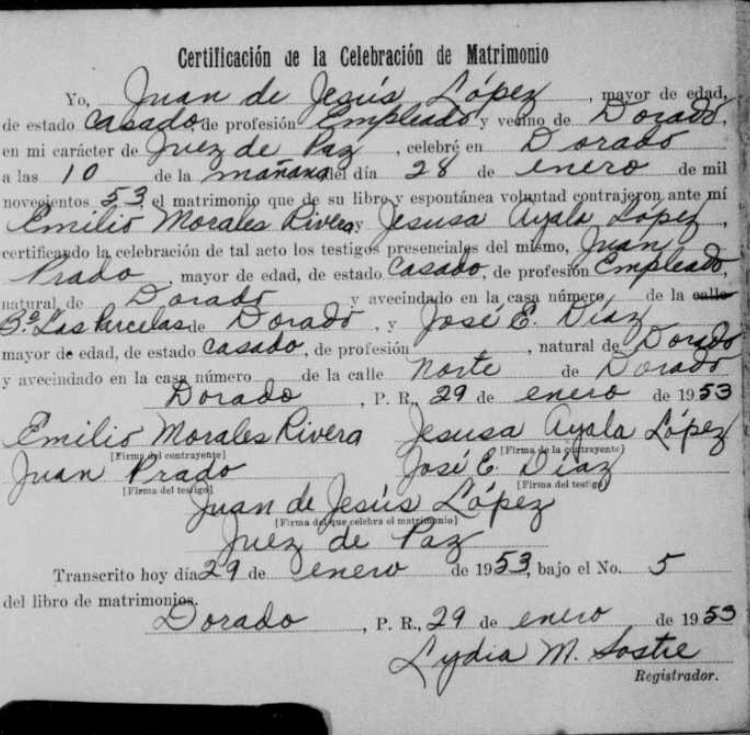 Certificación de la Celebración de Matrimonio
Yo, Juan de Jesús López, mayor de edad,
de estado casado, de profesión Empleado y vecino de Dorado,
en mi carácter de Juez de Paz, celebré en Dorado
a las 10 de la mañana del día 28 de enero de mil
novecientos 53, el matrimonio que de su libre y espontánea voluntad contrajeron ante mí
Emilio Morales Rivera y Jesusa Ayala López,
certificando la celebración de tal acto los testigos presenciales del mismo, Juan
Prado, mayor de edad, de estado casado, de profesión Empleado,
natural de Dorado y avecindado en la casa número de la calle
Bo. Las Parcelas de Dorado, y José E. Díaz
mayor de edad, de estado casado, de profesión , natural de Dorado
y avecindado en la casa número de la calle Norte de Dorado
Dorado, P. R., 29 de enero de 1953
Emilio Morales Rivera Jesusa Ayala López
[Firma del contrayente] [Firma de la contrayente]
Juan Prado José E. Díaz
[Firma del testigo] [Firma del testigo]
Juan de Jesús López
[Firma del que celebra el matrimonio]
Juez de Paz
Transcrito hoy día 29 de enero de 1953, bajo el No. 5
del libro de matrimonios.
Dorado, P. R., 29 de enero de 1953
Lydia M. Sostre
Registrador.